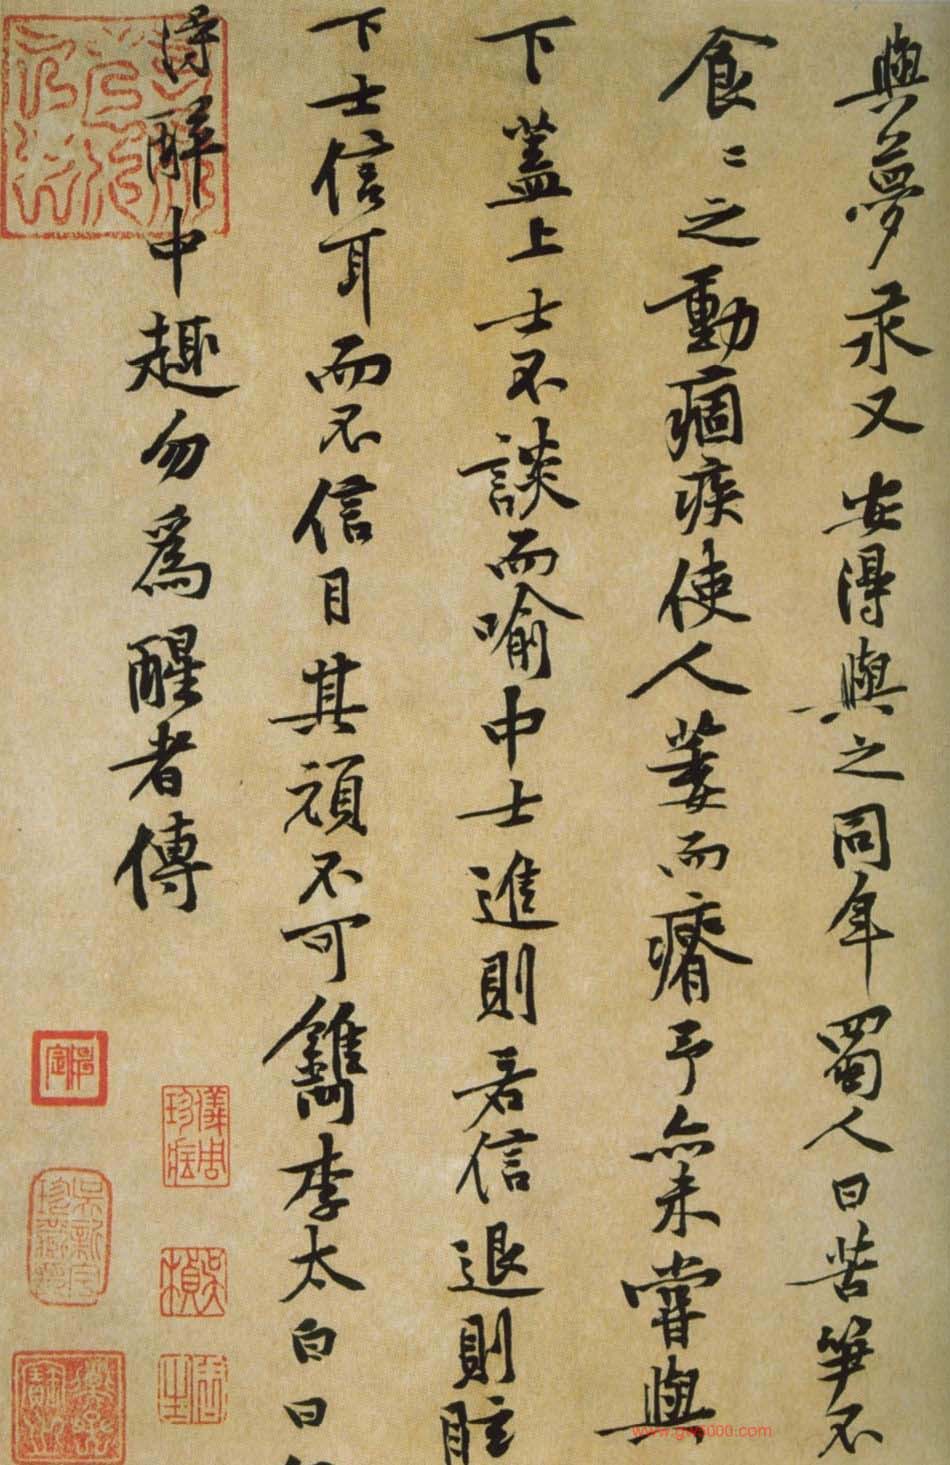 與夢汞又安得與之同年蜀人曰苦笋不
食〻之動痼疾使人萎而瘠予亦未嘗與
下蓋上士不談而喻中士進則若信退則眩
下士信耳而不信目其頑不可鐫李太白曰
得醉中趣勿為醒者傳
儀周珍藏
吳楨
吳新宇珍藏印